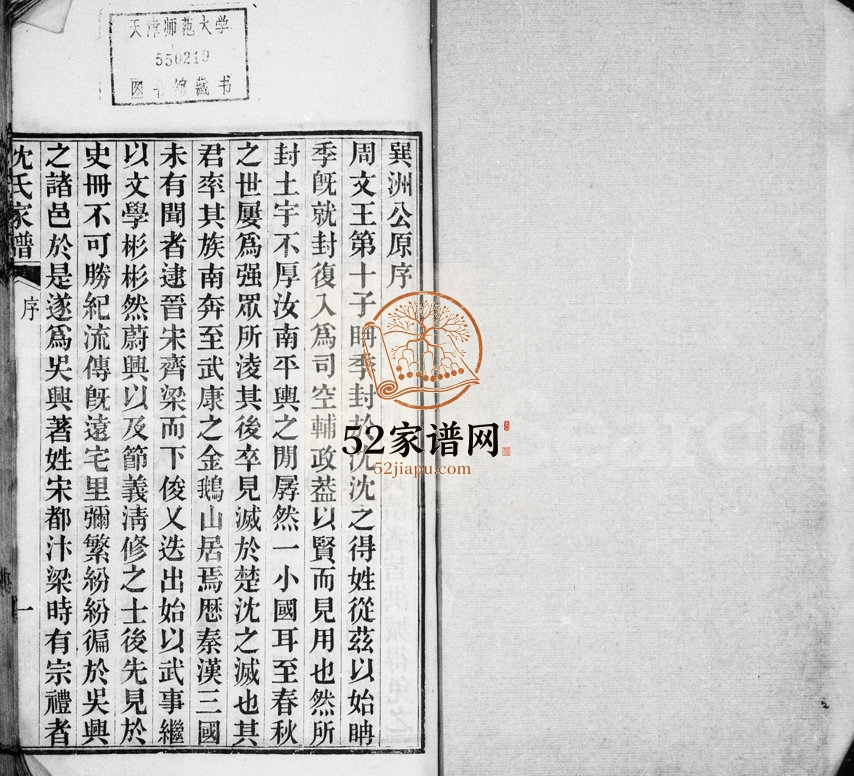 天津师范大学
550219
图书馆藏书
巽洲公原序
周文王第十子聃季封於沈沈之得姓從茲以始聃
季旣就封復入爲司空輔政葢以賢而見用也然所
封土宇不厚汝南平輿之閒孱然一小國耳至春秋
之世屢爲强眾所淩其後卒見滅於楚沈之滅也其
君率其族南奔至武康之金鵝山居焉歷秦漢三國
未有聞者逮晉宋齊梁而下俊乂迭出始以武事繼
以文學彬彬然蔚興以及節義淸修之士後先見於
史冊不可勝紀流傳旣遠宅里彌繁紛紛徧於吳興
之諸邑於是遂爲吳興著姓宋都汴梁時有宗禮者
沈氏家譜
序
一
52家谱网
52jiapu.com